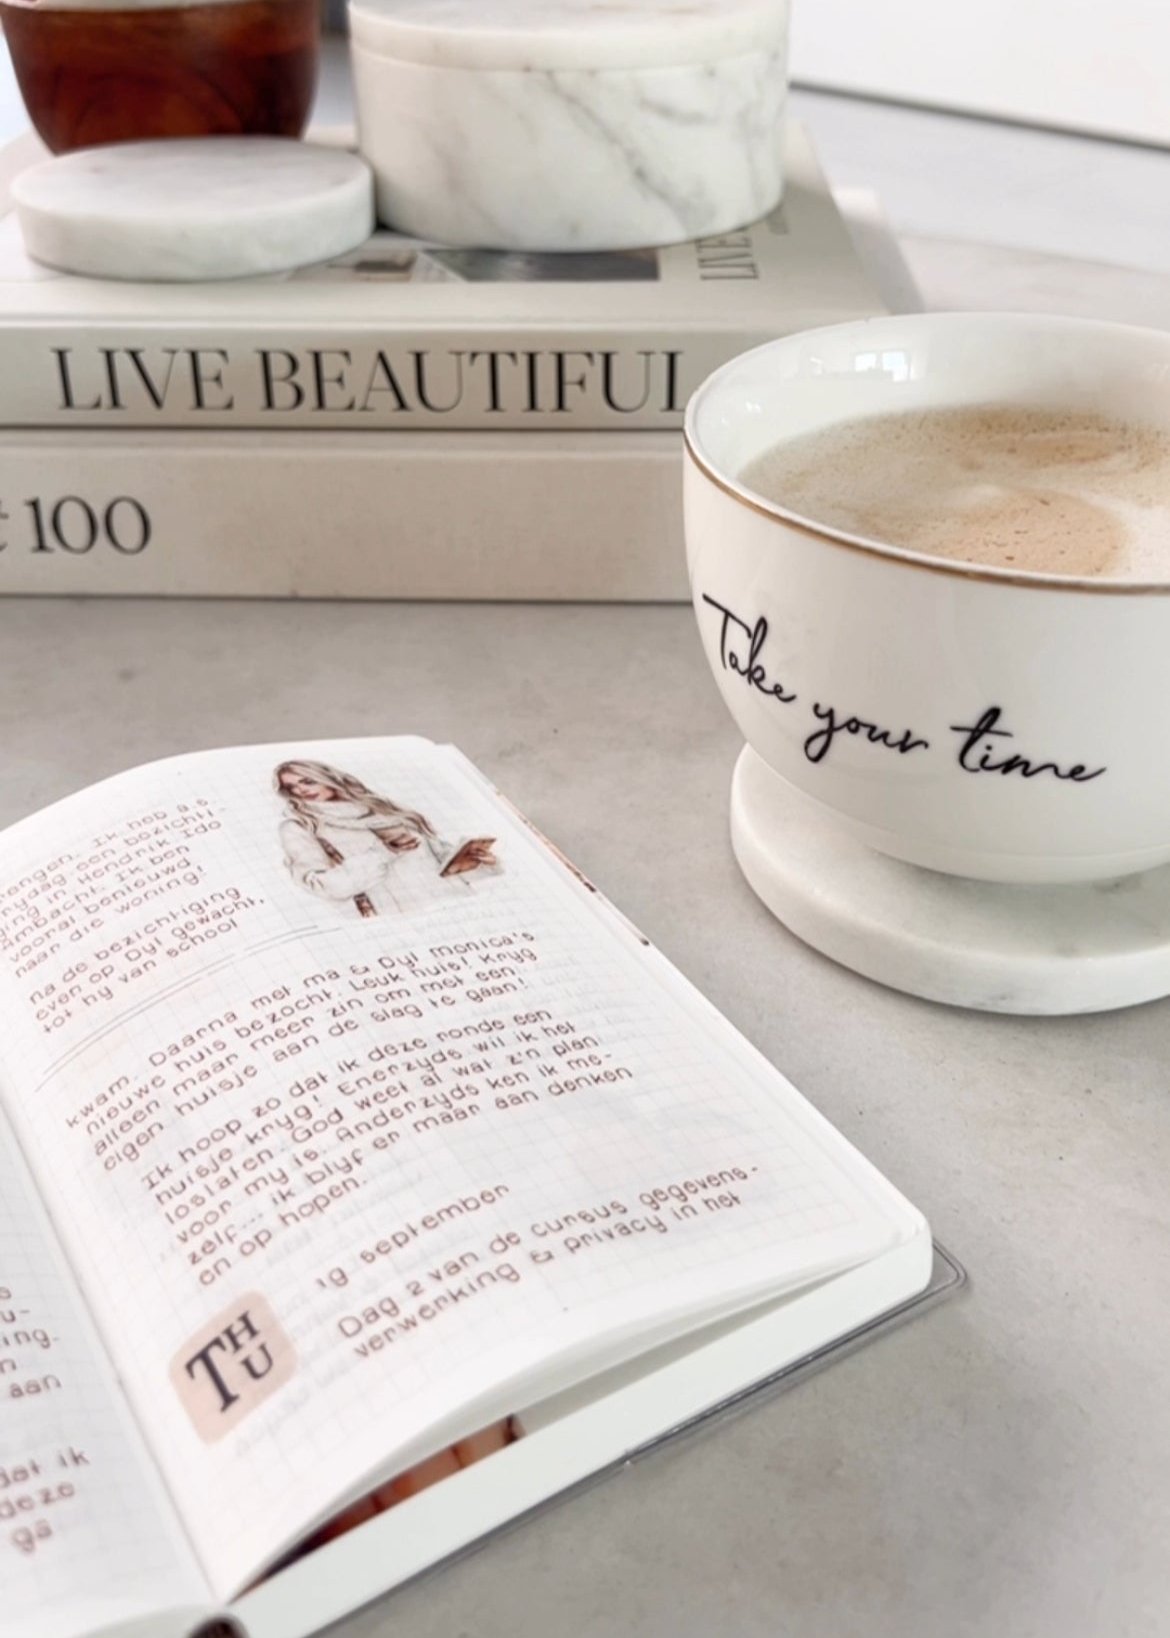 LIVE
LIVE BEAUTIFUL
100
Take your time
Ik heb a.s.
een bezichti-
ging in Hendrik Ido
Ambacht. Ik ben
vooral benieuwd
naar die woning!
na de bezichtiging
even op Dyl gewacht,
tot hy van school
kwam. Daarna met ma & Dyl monica's
nieuwe huis bezocht. Leuk huis! Kryg
alleen maar meer zin om met een
eigen huisje aan de slag te gaan!
Ik hoop zo dat ik deze ronde een
huisje kryg! Enerzyds wil ik het
loslaten. God weet al wat z'n plan
voor my is. Anderzyds ken ik me-
zelf... ik blyf er maar aan denken
en op hopen.
19 september
THU
Dag 2 van de cursus gegevens-
verwerking & privacy in het
u-
ing.
n
aan
dat ik
deze
ga